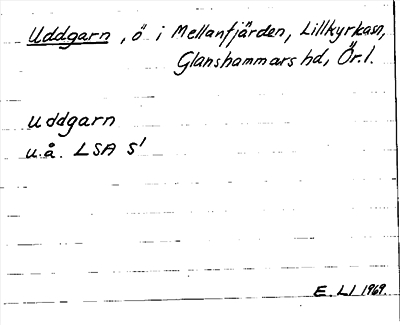 Uddgarn, ö i Mellanfjärden, Lillkyrkasn,
Glanshammars hd, Ör.l.
Uddgarn
u.å. LSA S¹
E. LI 1969.